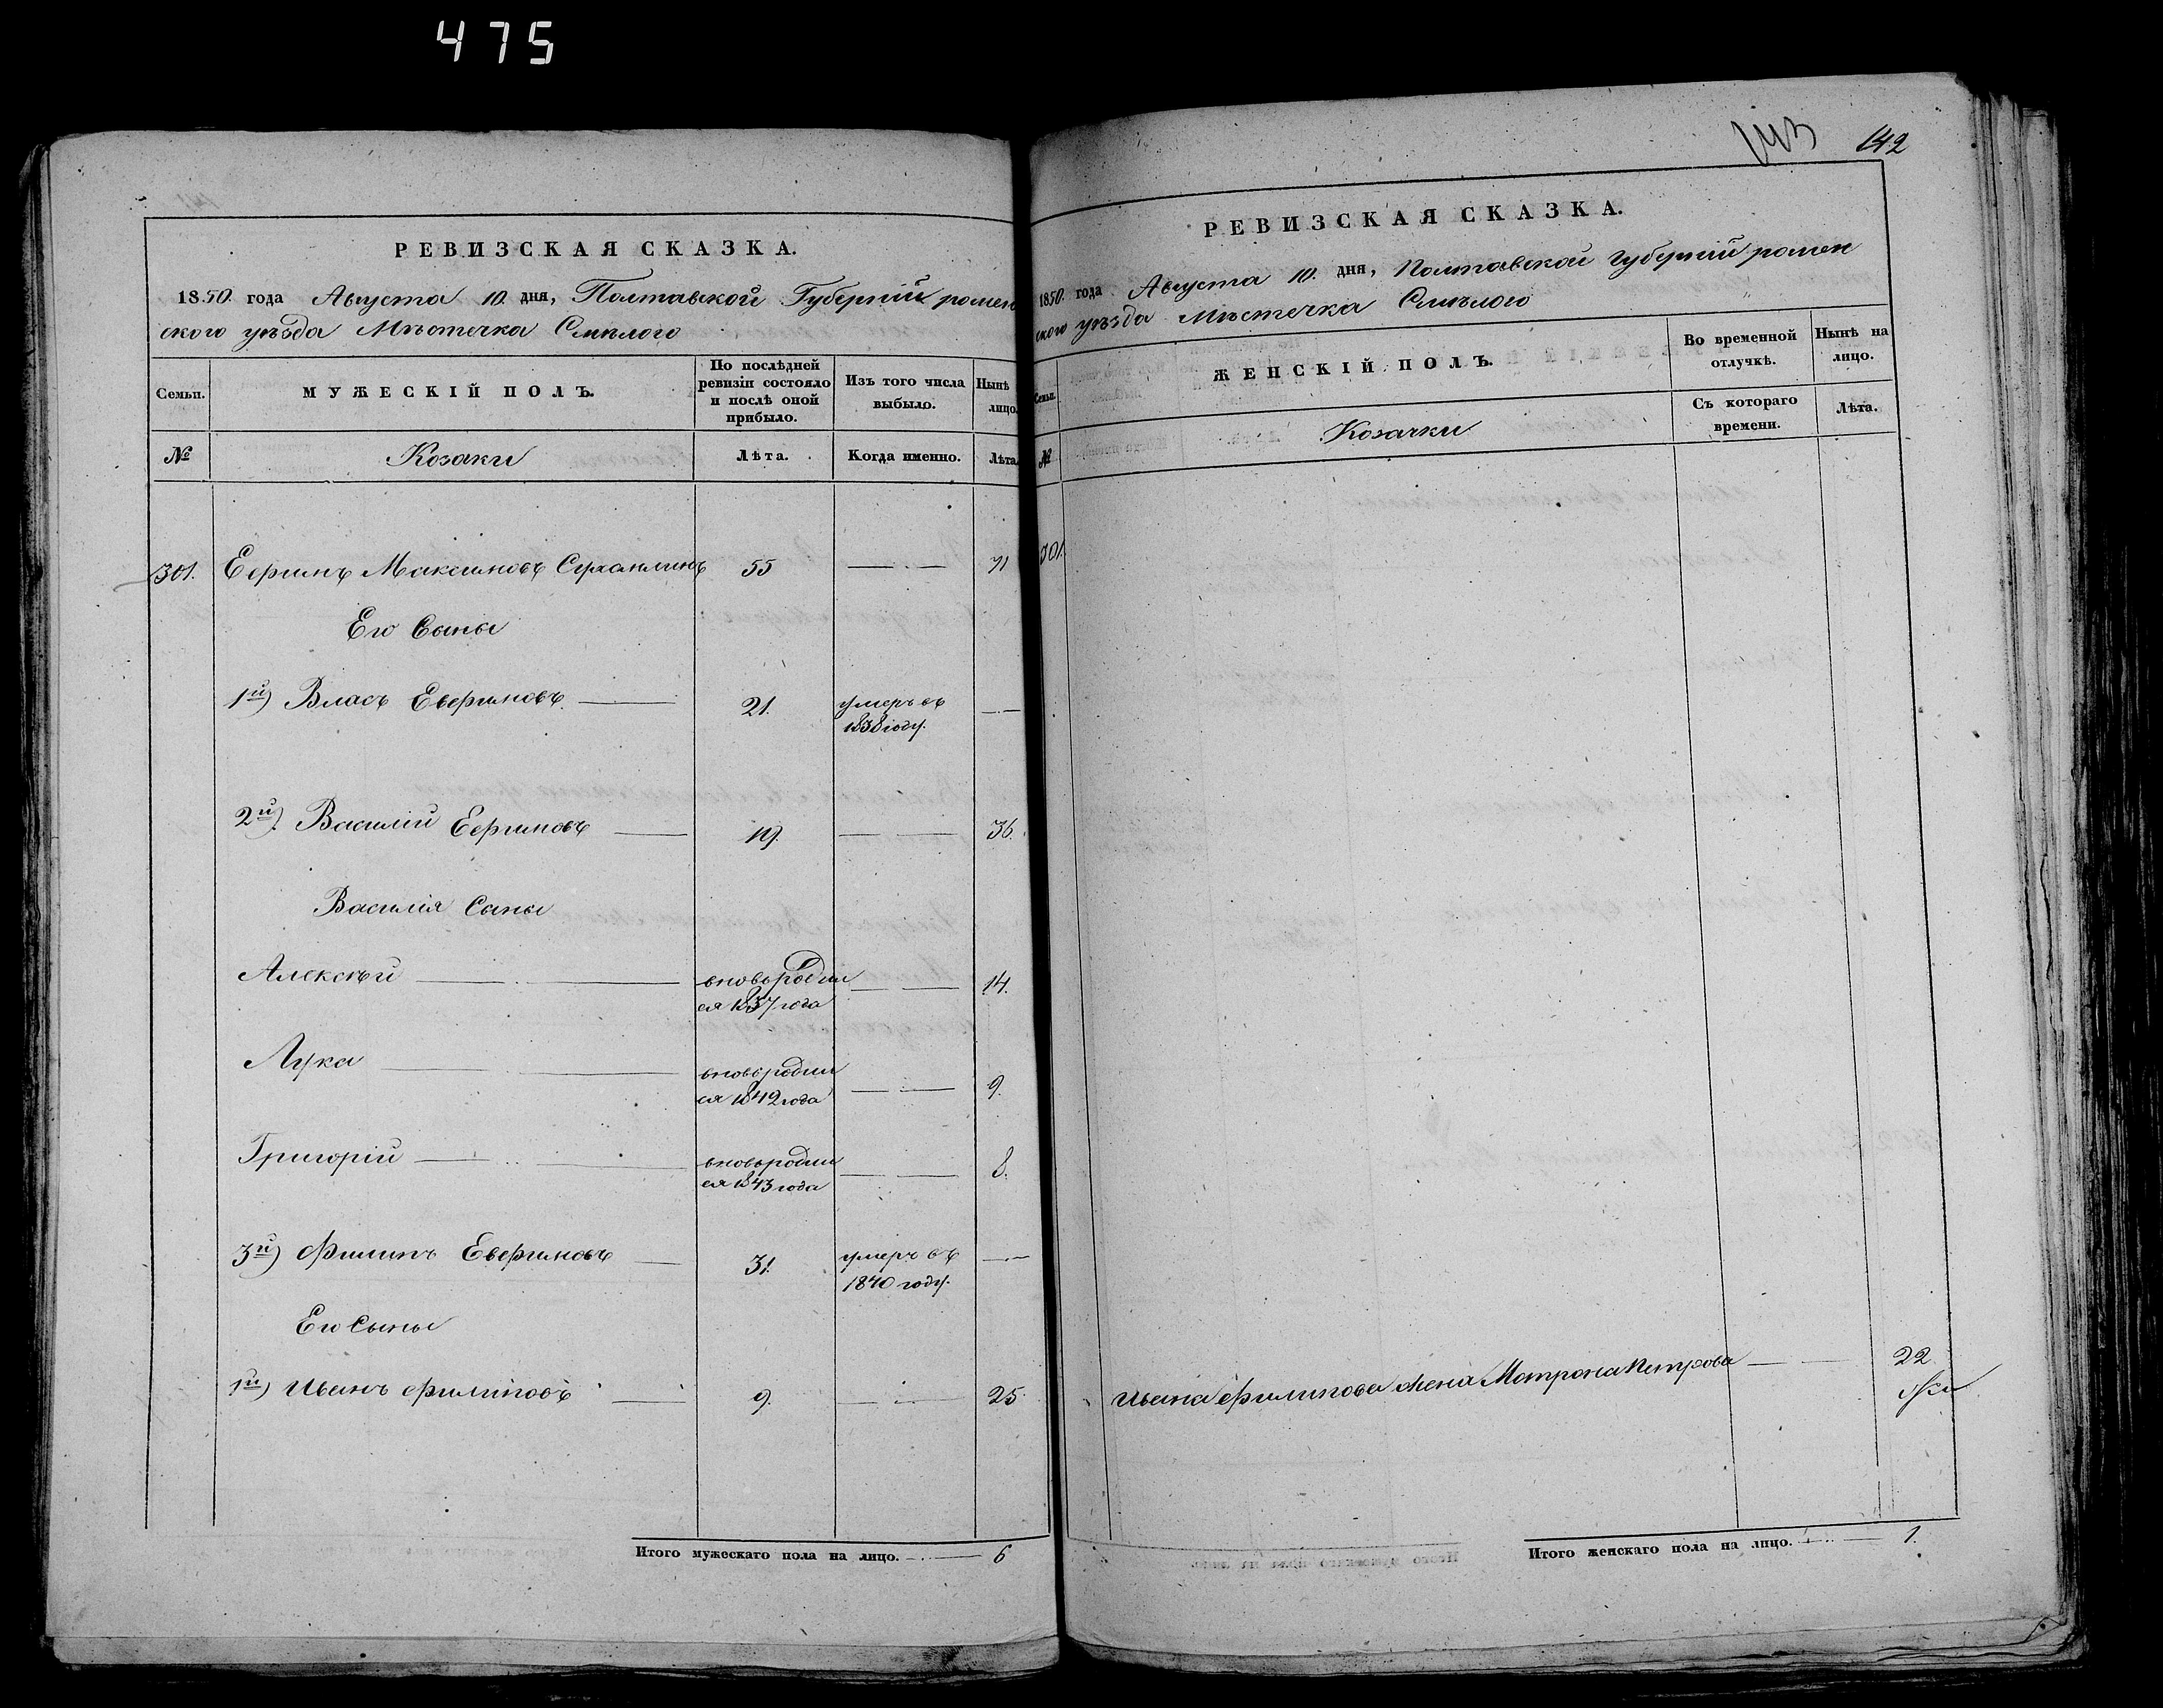 475
РЕВИЗСКАЯ СКАЗКА.
1850. года Августа 10. дня, Полтавской Губерніи ромен
ского уѣзда Мѣстечка Смѣлого
Семьи.
МУЖЕСКІЙ ПОЛЪ.
По послѣдней
ревизіи состояло
и послѣ оной
прибыло.
Изъ того числа
выбыло.
Нынѣ
лицо.
№
Козаки
Лѣта.
Когда именно.
Лѣта.
301. Ефимъ Максимовъ 55 71
Его Сыны
1й) Власъ Евфимовъ 21. умеръ въ
1838 году.
2й) Василій Ефимовъ 19. 36.
Василія Сыны
Алексѣй вновьродил 14.
ся 1837 года
Лука вновьродил 9.
ся 1842 года
Григорій вновьродил 8.
ся 1843 года
3й) Филипъ Евфимовъ 31. умеръ въ
1840 году.
Его Сыны
1й) Иванъ Филиповъ 9. 25.
Итого мужескаго пола на лицо. 6
143 142
РЕВИЗСКАЯ СКАЗКА.
1850. года Августа 10. дня, Полтавской губерніи ромен
ского уѣзда Мѣстечка Смѣлого
Семьи.
ЖЕНСКІЙ ПОЛЪ.
Во временной
отлучкѣ.
Нынѣ на
лицо.
№
Козачки
Съ котораго
времени.
Лѣта.
301.
Ивана Филипова жена Мотрона Петрова 22
Итого женскаго пола на лицо. 1.